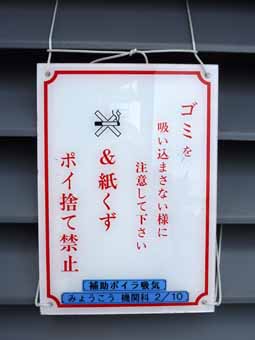 ゴミを
吸い込まさない様に
注意して下さい
&紙くず
ポイ捨て禁止
補助ボイラ吸気
みょうこう 機関科 2/10